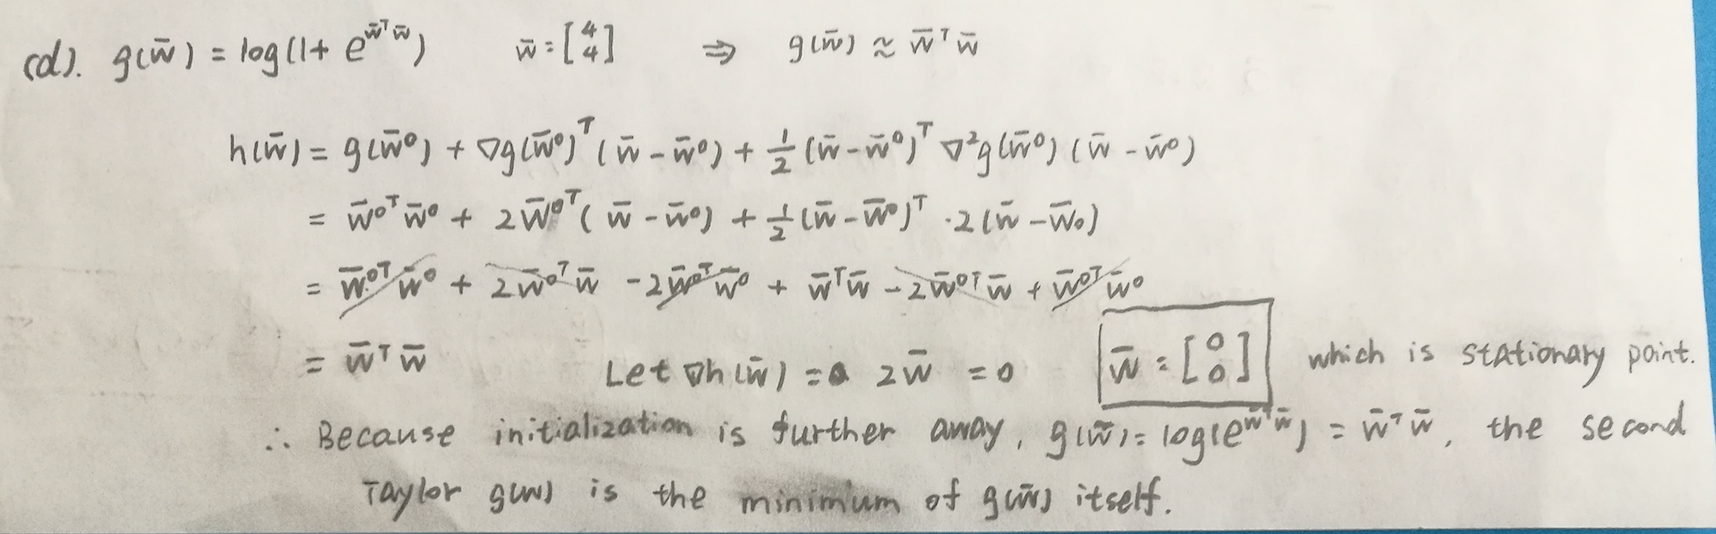 (d). g(w̄) = log(1+ e^{w̄ᵀw̄}) w̄ = [4 4] ⇒ g(w̄) ≈ w̄ᵀw̄
h(w̄) = g(w̄⁰) + ∇g(w̄⁰)ᵀ(w̄ - w̄⁰) + ½(w̄ - w̄⁰)ᵀ ∇²g(w̄⁰)(w̄ - w̄⁰)
= w̄⁰ᵀw̄⁰ + 2w̄⁰ᵀ(w̄ - w̄⁰) + ½(w̄ - w̄⁰)ᵀ · 2(w̄ - w̄₀)
= w̄⁰ᵀw̄⁰ + 2w̄⁰ᵀw̄ - 2w̄⁰ᵀw̄⁰ + w̄ᵀw̄ - 2w̄⁰ᵀw̄ + w̄⁰ᵀw̄⁰
= w̄ᵀw̄ Let ∇h(w̄) = 2w̄ = 0 w̄ = [0 0] which is stationary point.
∴ Because initialization is further away, g(w̄) = log(e^{w̄ᵀw̄}) = w̄ᵀw̄, the second
Taylor g(w) is the minimum of g(w̄) itself.